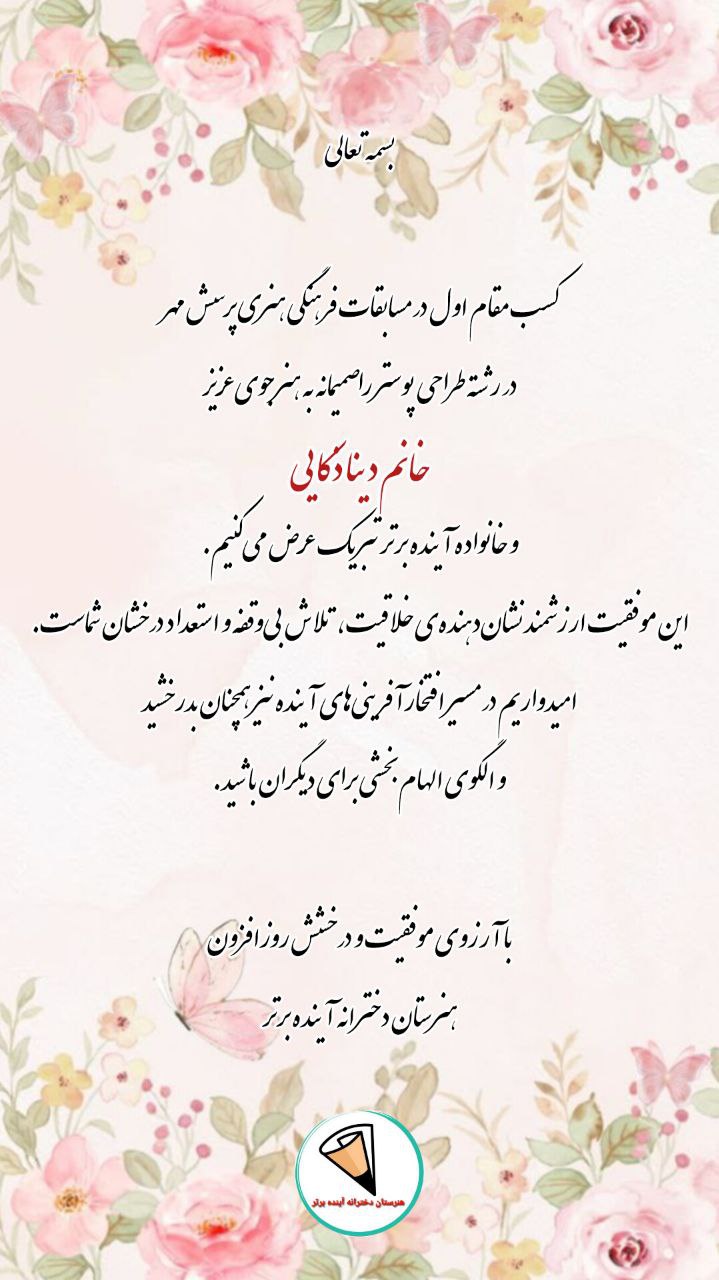 بسمه تعالی
کسب مقام اول در مسابقات فرهنگی هنری پرسش مهر
در رشته طراحی پوستر را صمیمانه به هنرجوی عزیز
خانم دینا ذکایی
و خانواده آینده برتر تبریک عرض می کنیم .
این موفقیت ارزشمند نشان دهنده ی خلاقیت، تلاش بی وقفه و استعداد درخشان شماست.
امیدواریم در مسیر افتخارآفرینی های آینده نیز همچنان بدرخشید
و الگوی الهام بخشی برای دیگران باشید .
با آرزوی موفقیت و درخشش روز افزون
هنرستان دخترانه آینده برتر
هنرستان دخترانه آینده برتر